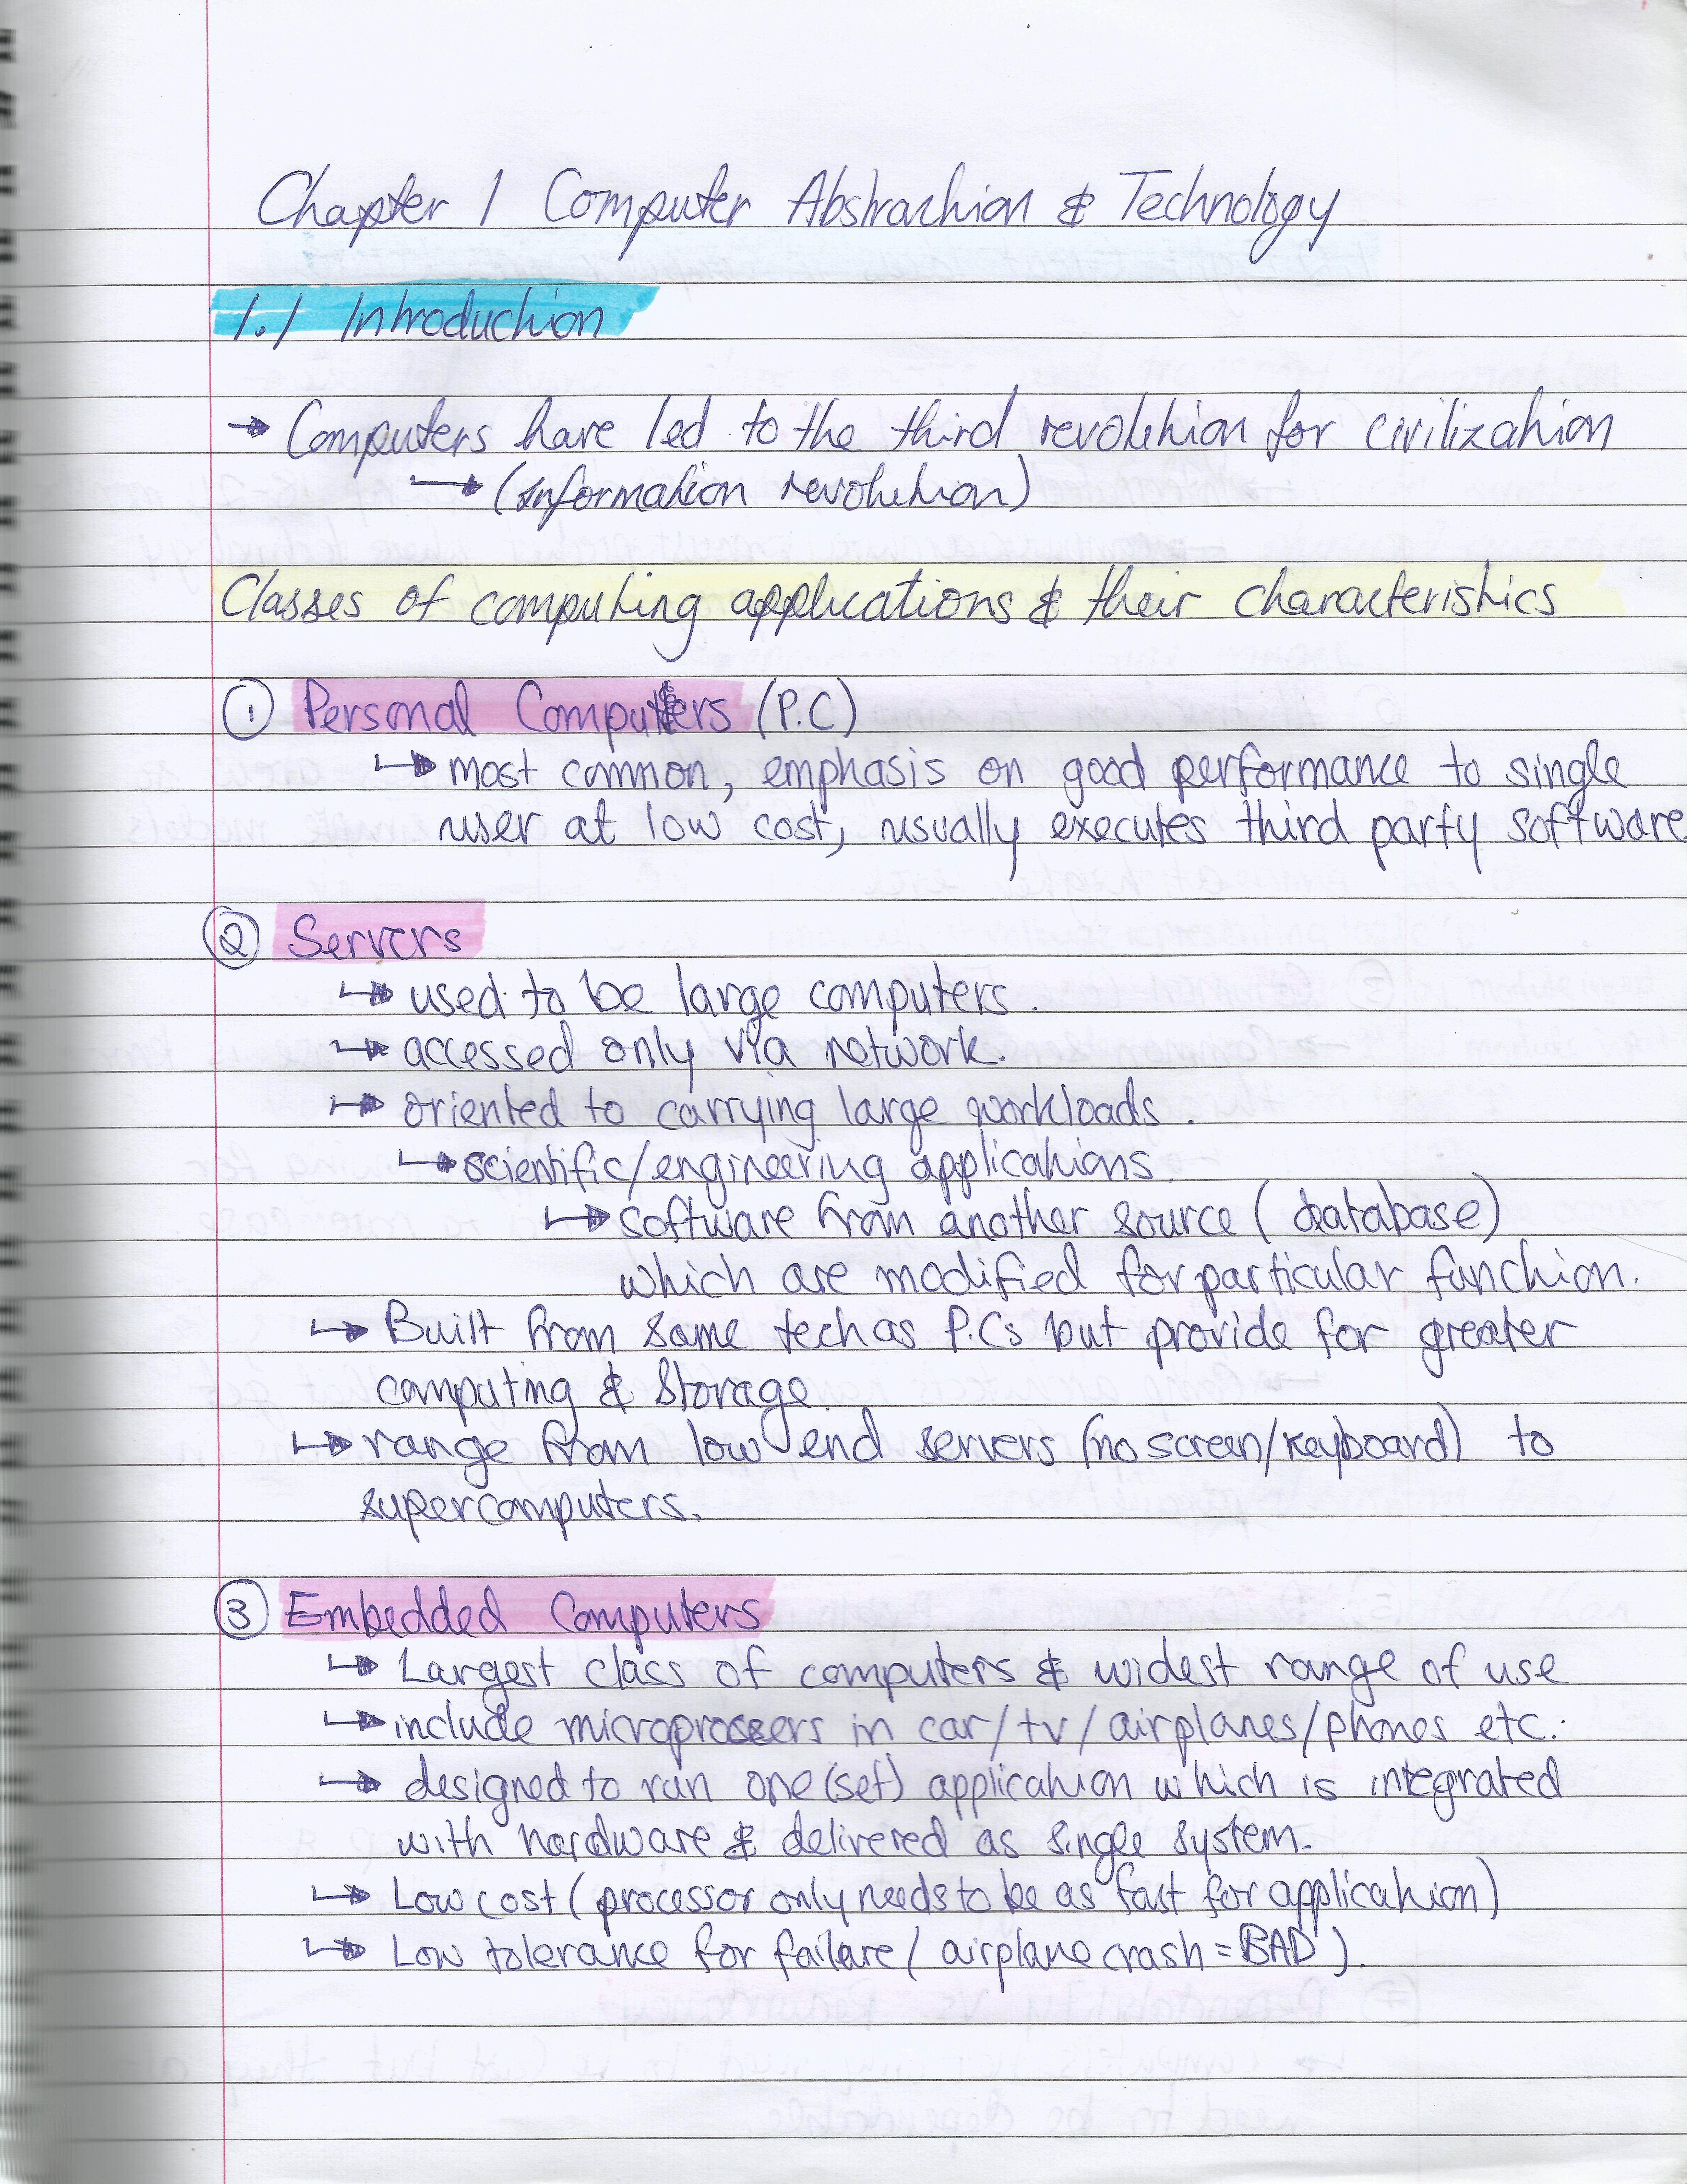 Chapter 1 Computer Abstraction & Technology
1.1 Introduction
→ Computers have led to the third revolution for civilization
→ (Information revolution)
Classes of computing applications & their characteristics
① Personal Computers (P.C)
↳ most common, emphasis on good performance to single
user at low cost, usually executes third party software
② Servers
↳ used to be large computers.
↳ accessed only via network.
↳ oriented to carrying large workloads.
↳ scientific/engineering applications.
↳ software from another source (database)
which are modified for particular function.
↳ Built from same tech as P.Cs but provide for greater
computing & storage.
↳ range from low end servers (no screen/keyboard) to
supercomputers.
③ Embedded Computers
↳ Largest class of computers & widest range of use
↳ include microprossers in car/tv/airplanes/phones etc.
↳ designed to run one (set) application which is integrated
with hardware & delivered as single system.
↳ Low cost (processor only needs to be as fast for application)
↳ Low tolerance for failure (airplane crash = BAD).